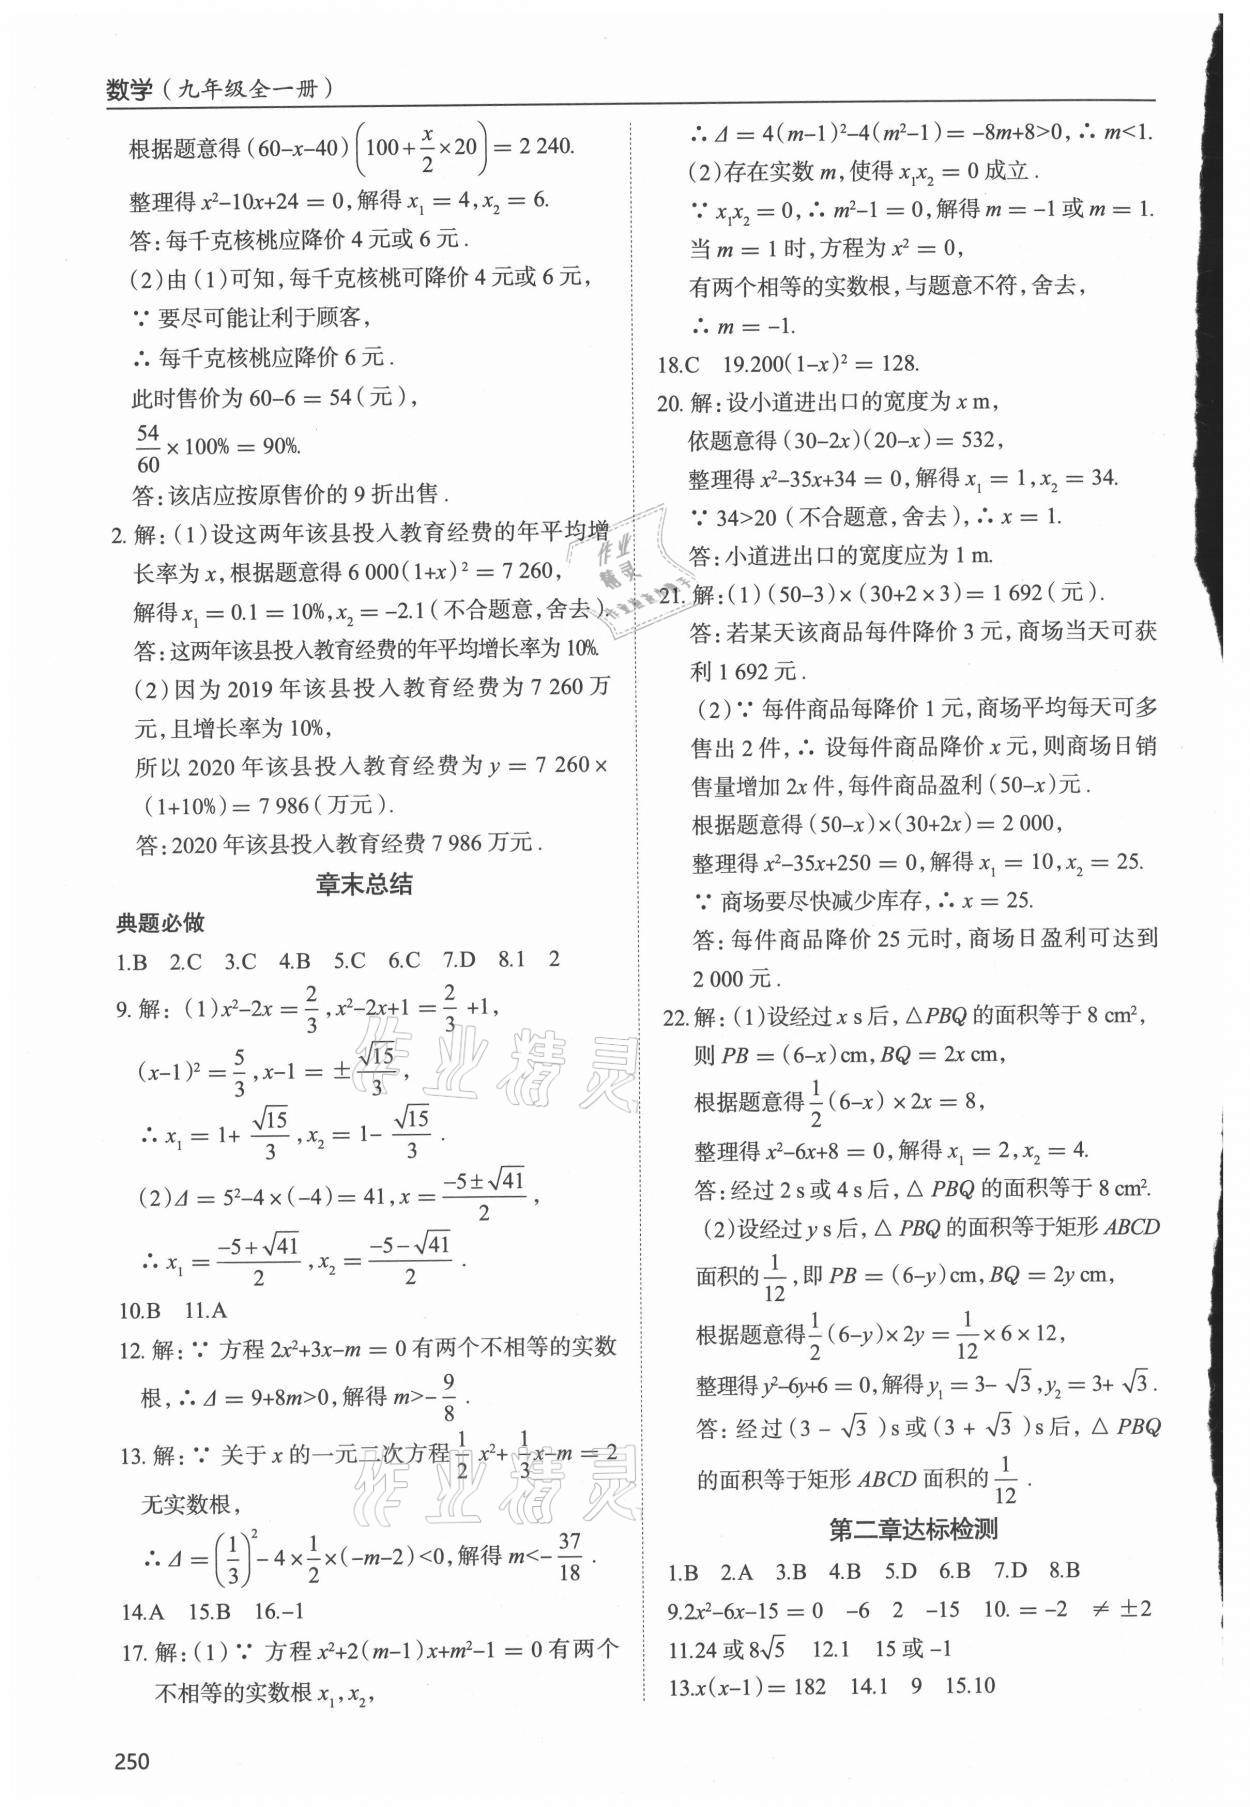 数学（九年级全一册）
根据题意得(60-x-40)(100+x/2×20)=2 240.
整理得x²-10x+24=0,解得x₁=4,x₂=6.
答:每千克核桃应降价4元或6元.
(2)由(1)可知,每千克核桃可降价4元或6元,
∵要尽可能让利于顾客,
∴每千克核桃应降价6元.
此时售价为60-6=54(元),
54/60×100%=90%.
答:该店应按原售价的9折出售.
2.解:(1)设这两年该县投入教育经费的年平均增
长率为x,根据题意得6 000(1+x)²=7 260,
解得x₁=0.1=10%,x₂=-2.1(不合题意,舍去)
答:这两年该县投入教育经费的年平均增长率为10%.
(2)因为2019年该县投入教育经费为7 260万
元,且增长率为10%,
所以2020年该县投入教育经费为y=7 260×
(1+10%)=7 986(万元).
答:2020年该县投入教育经费7 986万元.
章末总结
典题必做
1.B 2.C 3.C 4.B 5.C 6.C 7.D 8.1 2
9.解:(1)x²-2x=2/3,x²-2x+1=2/3+1,
(x-1)²=5/3,x-1=±√15/3,
∴x₁=1+√15/3,x₂=1-√15/3.
(2)Δ=5²-4×(-4)=41,x=(-5±√41)/2,
∴x₁=(-5+√41)/2,x₂=(-5-√41)/2.
10.B 11.A
12.解:∵方程2x²+3x-m=0有两个不相等的实数
根,∴Δ=9+8m>0,解得m>-9/8.
13.解:∵关于x的一元二次方程1/2x²+1/3x-m=2
无实数根,
∴Δ=(1/3)²-4×1/2×(-m-2)<0,解得m<-37/18.
14.A 15.B 16.-1
17.解:(1)∵方程x²+2(m-1)x+m²-1=0有两个
不相等的实数根x₁,x₂,
∴Δ=4(m-1)²-4(m²-1)=-8m+8>0,∴m<1.
(2)存在实数m,使得x₁x₂=0成立.
∵x₁x₂=0,∴m²-1=0,解得m=-1或m=1.
当m=1时,方程为x²=0,
有两个相等的实数根,与题意不符,舍去,
∴m=-1.
18.C 19.200(1-x)²=128.
20.解:设小道进出口的宽度为x m,
依题意得(30-2x)(20-x)=532,
整理得x²-35x+34=0,解得x₁=1,x₂=34.
∵34>20(不合题意,舍去),∴x=1.
答:小道进出口的宽度应为1 m.
21.解:(1)(50-3)×(30+2×3)=1 692(元).
答:若某天该商品每件降价3元,商场当天可获
利1 692元.
(2)∵每件商品每降价1元,商场平均每天可多
售出2件,∴设每件商品降价x元,则商场日销
售量增加2x件,每件商品盈利(50-x)元.
根据题意得(50-x)×(30+2x)=2 000,
整理得x²-35x+250=0,解得x₁=10,x₂=25.
∵商场要尽快减少库存,∴x=25.
答:每件商品降价25元时,商场日盈利可达到
2 000元.
22.解:(1)设经过x s后,△PBQ的面积等于8 cm²,
则PB=(6-x)cm,BQ=2x cm,
根据题意得1/2(6-x)×2x=8,
整理得x²-6x+8=0,解得x₁=2,x₂=4.
答:经过2 s或4 s后,△PBQ的面积等于8 cm².
(2)设经过y s后,△PBQ的面积等于矩形ABCD
面积的1/12,即PB=(6-y)cm,BQ=2y cm,
根据题意得1/2(6-y)×2y=1/12×6×12,
整理得y²-6y+6=0,解得y₁=3-√3,y₂=3+√3.
答:经过(3-√3)s或(3+√3)s后,△PBQ
的面积等于矩形ABCD面积的1/12.
第二章达标检测
1.B 2.A 3.B 4.B 5.D 6.B 7.D 8.B
9.2x²-6x-15=0 -6 2 -15 10.=-2 ≠±2
11.24或8√5 12.1 15或-1
13.x(x-1)=182 14.1 9 15.10
250
作业精灵
作业精灵
作业精灵